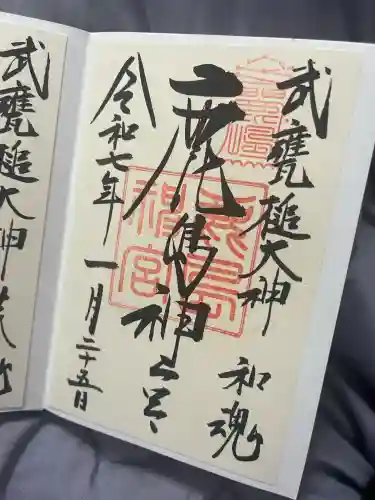 武甕槌大神
和魂
鹿島神宮
鹿島神宮
令和七年一月二十五日
武甕槌大神荒